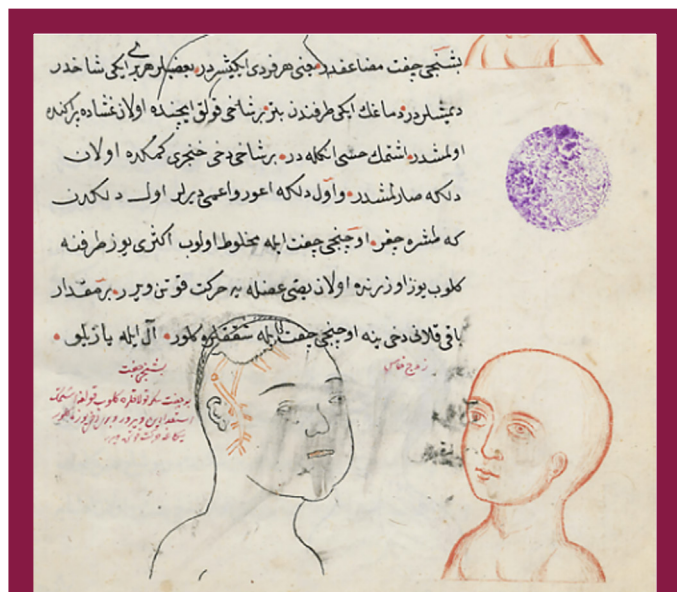 بشنجی جفت مضاعفدر یعنی هر فردی ایكیشردر بعضیلر هر بری ایكی شاخدر
دیمشلردر دماغك ایكی طرفندن بتر بر شاخی قولق ایچنده اولان غشاده پراكنده
اولمشدر اشتمك حسی انكله در بر شاخی دخی خنجری كمكده اولان
دلكه صارلمشدر و اول دلكه اعور و اعمی دیرلر اول دلكدن
كه طشره چقر اوچنجی جفت ایله مخلوط اولوب اكثری یوز طرفنه
كلوب یوز اوزرنده اولان یصی عضله یه حركت قوتن ویرر بر مقدار
باقی قلانی دخی ینه اوچنجی جفت ایله كلور آل ایله یازیلو
زوج خامس
بشنجی جفت